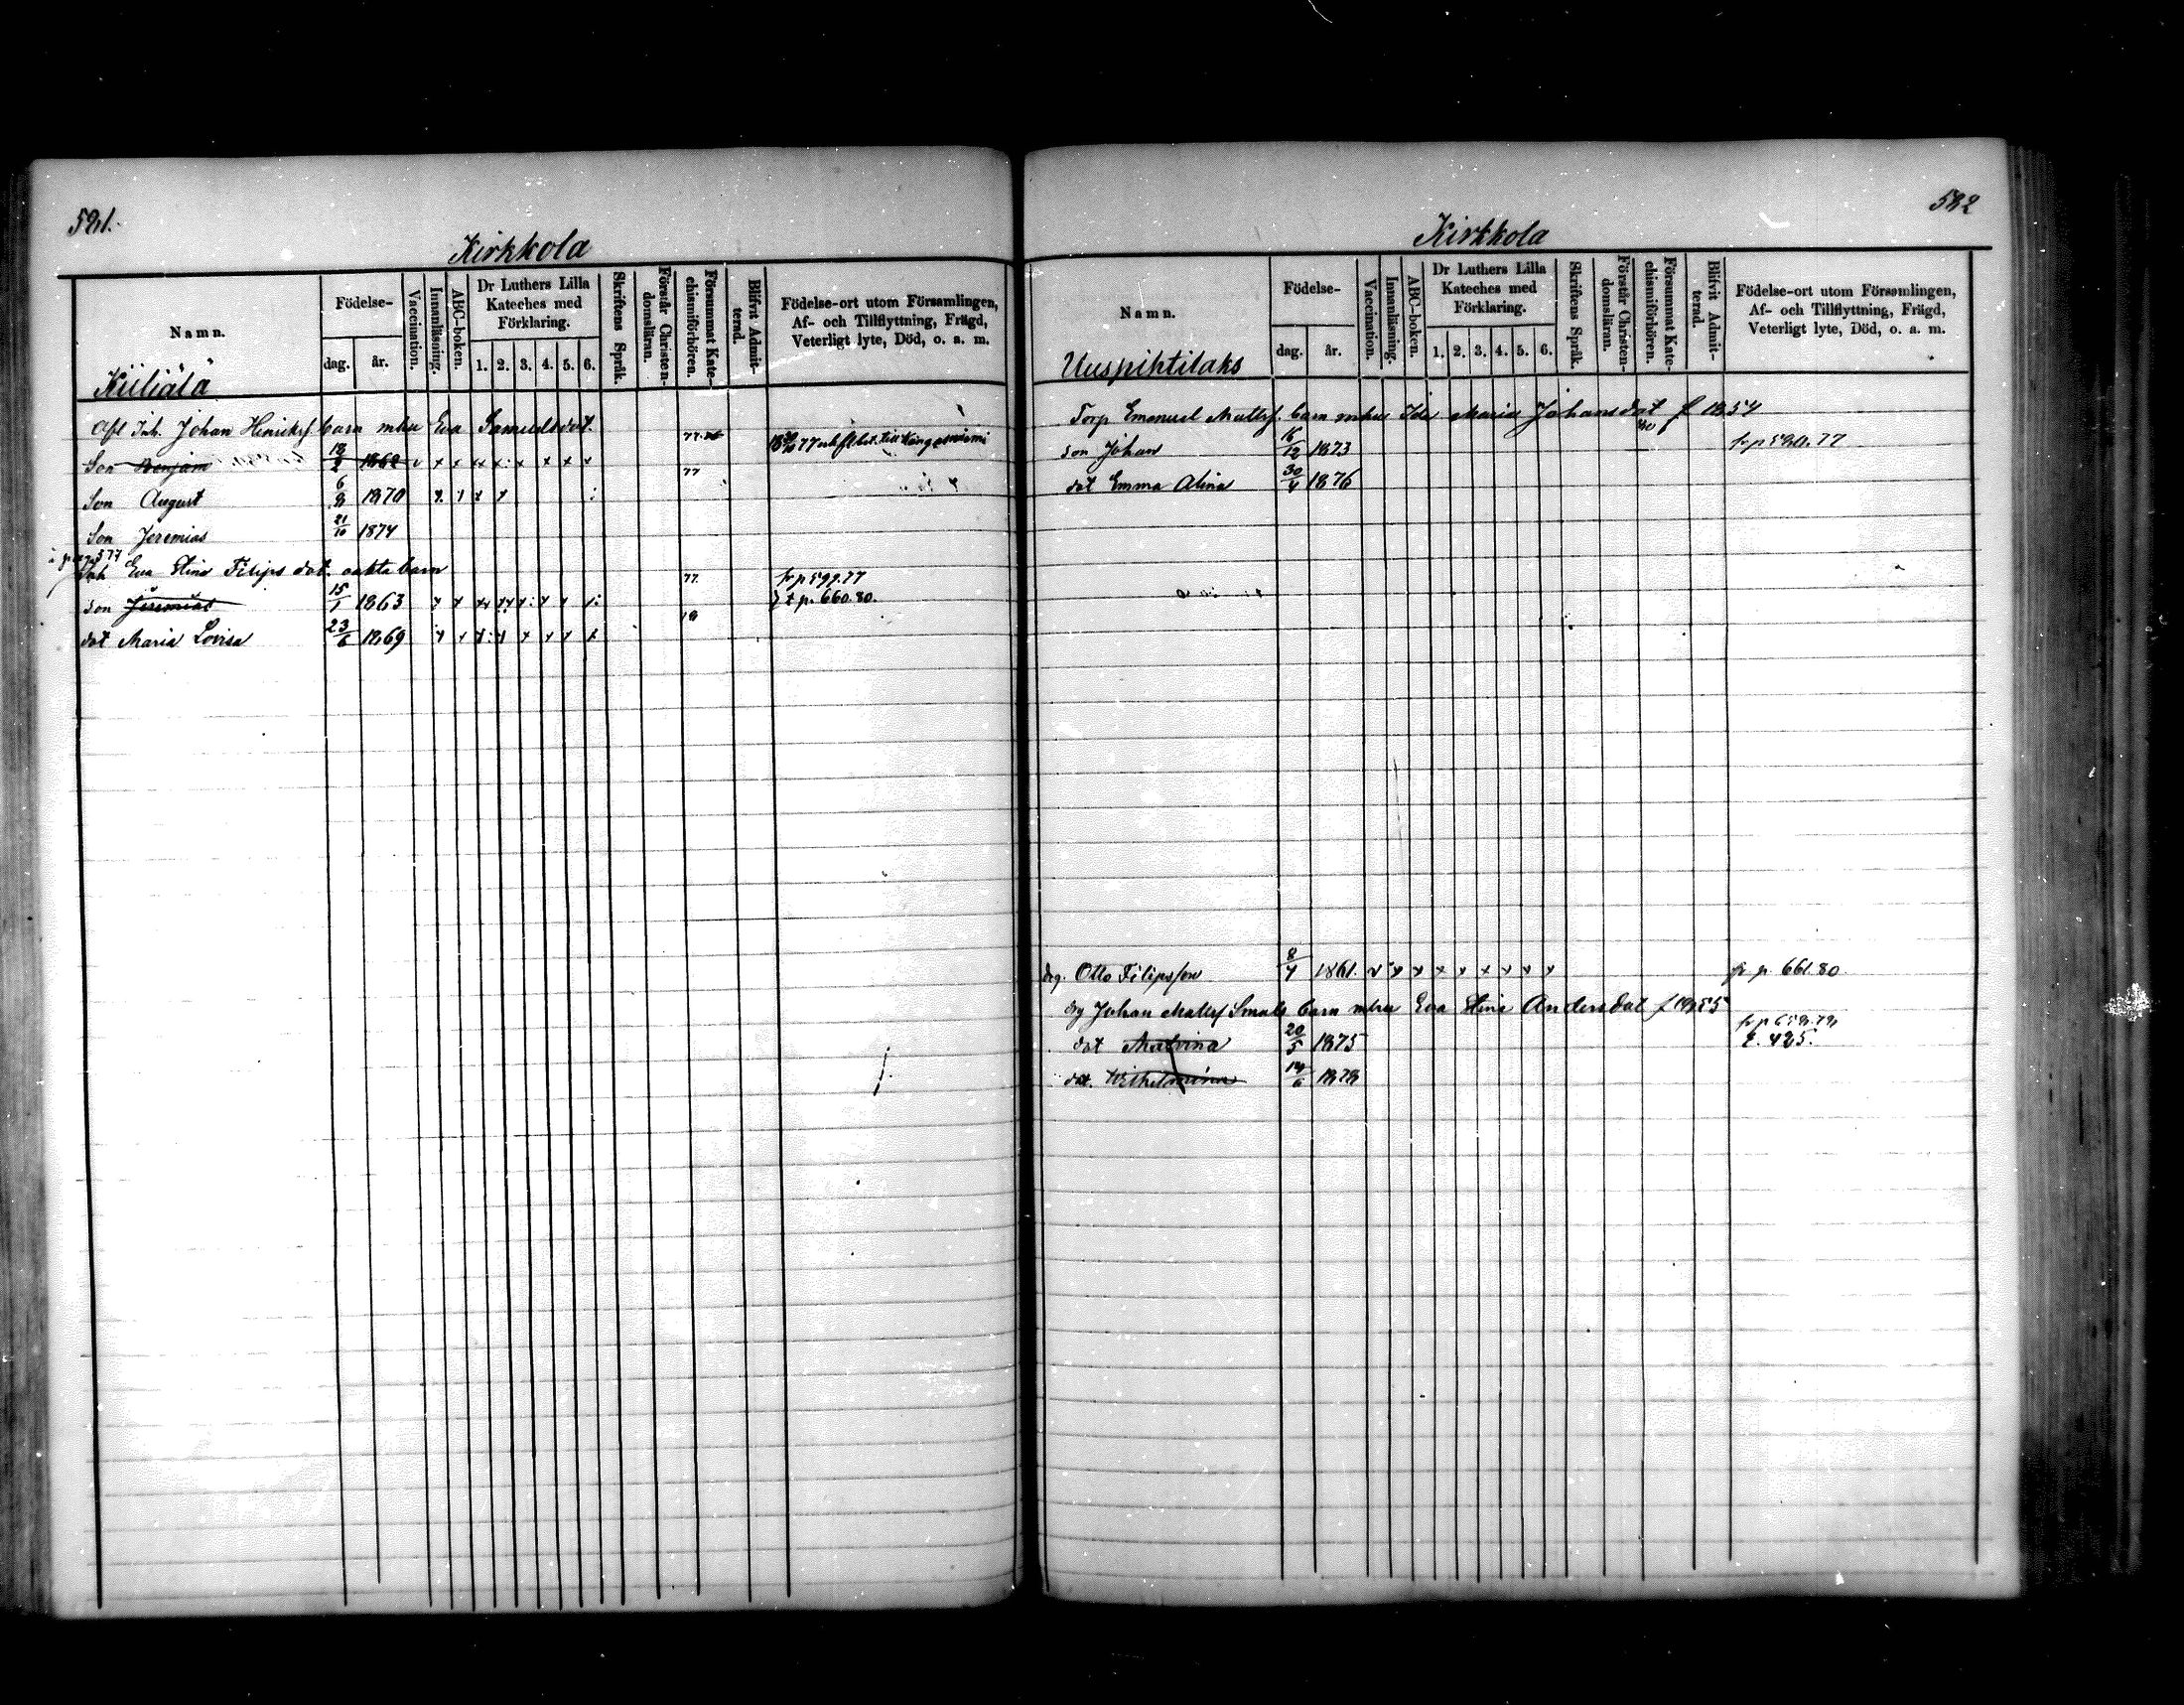 581.
Kirkkola
Namn.
Födelse-
dag.
år.
Vaccination.
Innanläsning.
ABC-boken.
Dr Luthers Lilla Kateches med Förklaring.
1. 2. 3. 4. 5. 6.
Skriftens Språk.
Förstår Christendomsläran.
Försummat Katechismiförhören.
Blifvit Admitterad.
Födelse-ort utom Församlingen,
Af- och Tillflyttning, Frägd,
Veterligt lyte, Död, o. a. m.
Kiiliälä
Afl Inh. Johan Henriksf. barn mhu Eva Samuelsdot.
Son Benjam 18/2 1862 v x x x x x x x x 77 77 till Kangasniemi
Son August 6/8 1870 x x x 77
Son Jeremias 21/10 1874
i pag. 577
Inh Eva Stina Filips dot. oäkta barn
son Jeremias 15/1 1863 x x x x x x x 77. fr p 597.77
t p. 660.80.
dot Maria Lovisa 23/6 1869 x x x x x x x x 18
582
Kirkkola
Namn.
Födelse-
dag.
år.
Vaccination.
Innanläsning.
ABC-boken.
Dr Luthers Lilla Kateches med Förklaring.
1. 2. 3. 4. 5. 6.
Skriftens Språk.
Förstår Christendomsläran.
Försummat Katechismiförhören.
Blifvit Admitterad.
Födelse-ort utom Församlingen,
Af- och Tillflyttning, Frägd,
Veterligt lyte, Död, o. a. m.
Uuspihtilaks
Torp Emanuel Mattsf. barn mhu Ida Maria Johansdot f 1854
son Johan 16/12 1873 fr p 580.77
dot Emma Alina 30/4 1876
drg. Otto Filipsson 8/4 1861. v x x x x x x x x fr p. 661.80
drg Johan Mattsf Smals barn mhu Eva Stina Andersdot f 1855
dot Malvina 20/5 1875 fr p 658.78
t. 425.
dot. Wilhelmina 14/6 1878